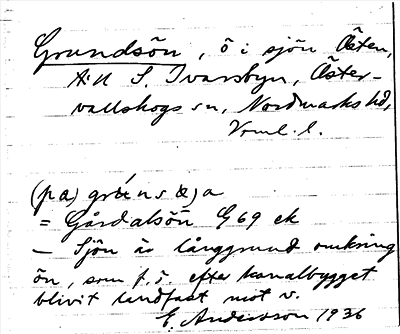 Grundsön, ö i sjön Östen,
Ä:N S. Ivarsbyn, Öster-
vallskogs sn, Nordmarks hd,
Vrml. l.
(pa)
= Gårdalsön G 69 ek
— Sjön är långgrund omkring
ön, som f. ö. efter kanalbygget
blivit landfast mot v.
E. Andersson 1936